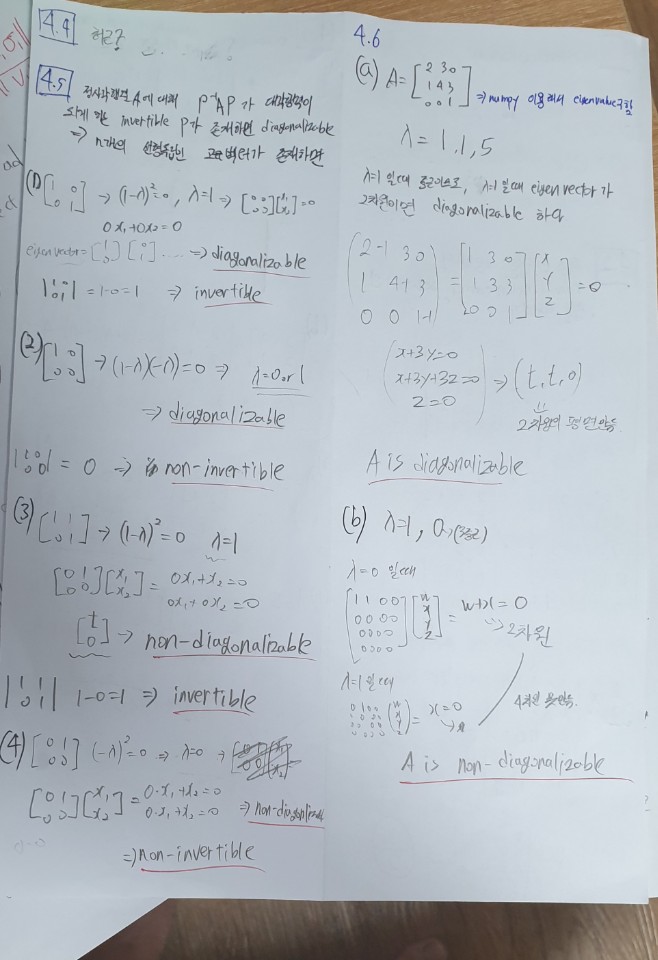 4.4
4.5 정사각행렬 A에 대해 P⁻¹AP가 대각행렬이
되게 하는 invertible P가 존재하면 diagonalizable
⇒ n개의 선형독립인 고유벡터가 존재하면
(1) [1 0; 0 1] → (1-λ)²=0, λ=1 ⇒ [0 0; 0 0][x₁; x₂]=0
0x₁+0x₂=0
eigenvector=[1; 0] [0; 1] .... ⇒ diagonalizable
|1 0; 0 1| = 1-0=1 ⇒ invertible
(2) [1 0; 0 0] → (1-λ)(-λ)=0 ⇒ λ=0 or 1
⇒ diagonalizable
|1 0; 0 0| = 0 ⇒ non-invertible
(3) [1 1; 0 1] → (1-λ)²=0 λ=1
[0 1; 0 0][x₁; x₂] = 0x₁+x₂=0
0x₁+0x₂=0
[t; 0] → non-diagonalizable
|1 1; 0 1| 1-0=1 ⇒ invertible
(4) [0 1; 0 0] (-λ)²=0 ⇒ λ=0 →
[0 1; 0 0][x₁; x₂] = 0·x₁+x₂=0
0·x₁+x₂=0 ⇒ non-diagonalizable
⇒ non-invertible
4.6
(a) A=[2 3 0; 1 4 3; 0 0 1] ⇒ numpy 이용해서 eigenvalue구함
λ = 1, 1, 5
λ=1 일때 중근이므로, λ=1 일때 eigenvector가
2차원이면 diagonalizable 하다
(2-1 3 0; 1 4-1 3; 0 0 1-1) = [1 3 0; 1 3 3; 0 0 1][x; y; z] = 0
x+3y=0
x+3y+3z=0 ⇒ (t, t, 0)
z=0
2차원의 평면만듦
A is diagonalizable
(b) λ=1, 0,(3중근)
λ=0 일때
[1 1 0 0; 0 0 0 0; 0 0 0 0; 0 0 0 0][w; x; y; z] = w+x=0
⇒ 2차원
λ=1 일때
= x=0
4차원 못만듦.
A is non-diagonalizable